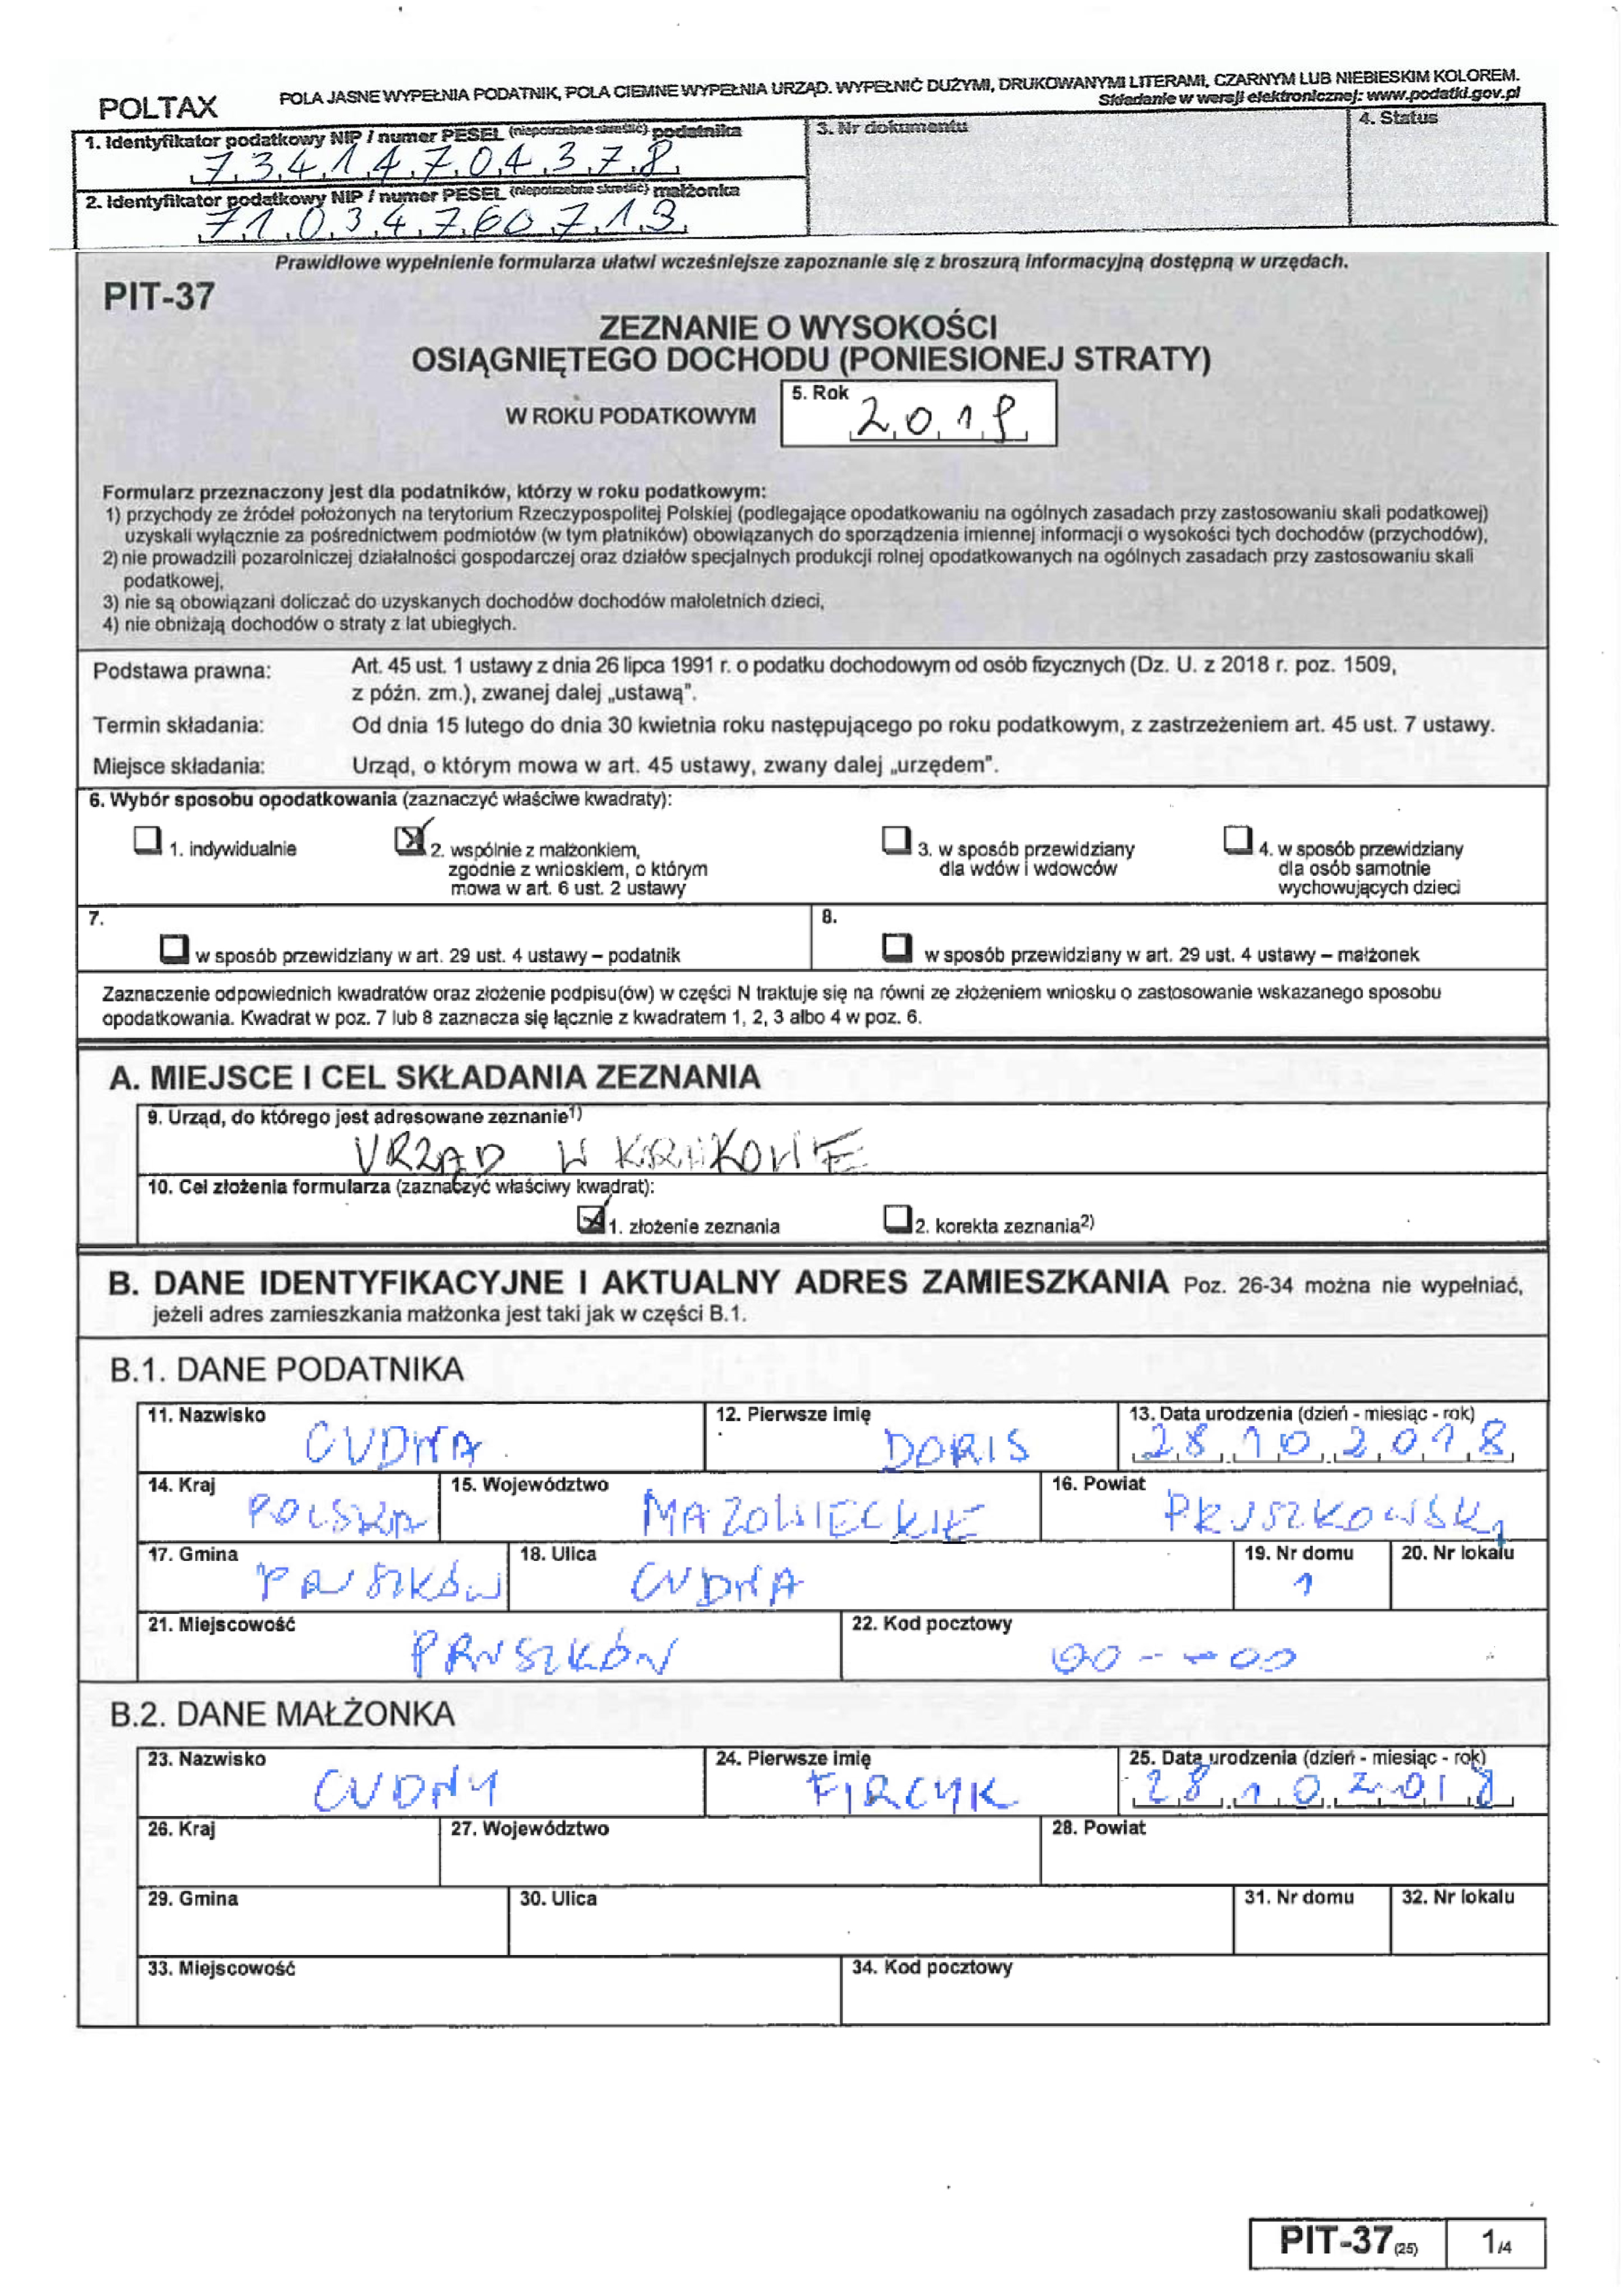 POLTAX
POLA JASNE WYPEŁNIA PODATNIK, POLA CIEMNE WYPEŁNIA URZĄD. WYPEŁNIĆ DUŻYMI, DRUKOWANYMI LITERAMI, CZARNYM LUB NIEBIESKIM KOLOREM.
Składanie w wersji elektronicznej: www.podatki.gov.pl
1. Identyfikator podatkowy NIP / numer PESEL (niepotrzebne skreślić) podatnika
73414704378
3. Nr dokumentu
4. Status
2. Identyfikator podatkowy NIP / numer PESEL (niepotrzebne skreślić) małżonka
71034760713
Prawidłowe wypełnienie formularza ułatwi wcześniejsze zapoznanie się z broszurą informacyjną dostępną w urzędach.
PIT-37
ZEZNANIE O WYSOKOŚCI
OSIĄGNIĘTEGO DOCHODU (PONIESIONEJ STRATY)
W ROKU PODATKOWYM
5. Rok
2019
Formularz przeznaczony jest dla podatników, którzy w roku podatkowym:
1) przychody ze źródeł położonych na terytorium Rzeczypospolitej Polskiej (podlegające opodatkowaniu na ogólnych zasadach przy zastosowaniu skali podatkowej)
uzyskali wyłącznie za pośrednictwem podmiotów (w tym płatników) obowiązanych do sporządzenia imiennej informacji o wysokości tych dochodów (przychodów),
2) nie prowadzili pozarolniczej działalności gospodarczej oraz działów specjalnych produkcji rolnej opodatkowanych na ogólnych zasadach przy zastosowaniu skali
podatkowej,
3) nie są obowiązani doliczać do uzyskanych dochodów dochodów małoletnich dzieci,
4) nie obniżają dochodów o straty z lat ubiegłych.
Podstawa prawna: Art. 45 ust. 1 ustawy z dnia 26 lipca 1991 r. o podatku dochodowym od osób fizycznych (Dz. U. z 2018 r. poz. 1509,
z późn. zm.), zwanej dalej „ustawą".
Termin składania: Od dnia 15 lutego do dnia 30 kwietnia roku następującego po roku podatkowym, z zastrzeżeniem art. 45 ust. 7 ustawy.
Miejsce składania: Urząd, o którym mowa w art. 45 ustawy, zwany dalej „urzędem".
6. Wybór sposobu opodatkowania (zaznaczyć właściwe kwadraty):
1. indywidualnie
2. wspólnie z małżonkiem,
zgodnie z wnioskiem, o którym
mowa w art. 6 ust. 2 ustawy
3. w sposób przewidziany
dla wdów i wdowców
4. w sposób przewidziany
dla osób samotnie
wychowujących dzieci
7.
w sposób przewidziany w art. 29 ust. 4 ustawy – podatnik
8.
w sposób przewidziany w art. 29 ust. 4 ustawy – małżonek
Zaznaczenie odpowiednich kwadratów oraz złożenie podpisu(ów) w części N traktuje się na równi ze złożeniem wniosku o zastosowanie wskazanego sposobu
opodatkowania. Kwadrat w poz. 7 lub 8 zaznacza się łącznie z kwadratem 1, 2, 3 albo 4 w poz. 6.
A. MIEJSCE I CEL SKŁADANIA ZEZNANIA
9. Urząd, do którego jest adresowane zeznanie1)
URZĄD W KRAKOWIE
10. Cel złożenia formularza (zaznaczyć właściwy kwadrat):
1. złożenie zeznania
2. korekta zeznania2)
B. DANE IDENTYFIKACYJNE I AKTUALNY ADRES ZAMIESZKANIA Poz. 26-34 można nie wypełniać,
jeżeli adres zamieszkania małżonka jest taki jak w części B.1.
B.1. DANE PODATNIKA
11. Nazwisko
CUDNA
12. Pierwsze imię
DORIS
13. Data urodzenia (dzień - miesiąc - rok)
28 10 2018
14. Kraj
POLSKA
15. Województwo
MAZOWIECKIE
16. Powiat
PRUSZKOWSKI
17. Gmina
PRUSZKÓW
18. Ulica
CUDNA
19. Nr domu
1
20. Nr lokalu
21. Miejscowość
PRUSZKÓW
22. Kod pocztowy
00 - - 00
B.2. DANE MAŁŻONKA
23. Nazwisko
CUDNY
24. Pierwsze imię
FIRCYK
25. Data urodzenia (dzień - miesiąc - rok)
28 10 2018
26. Kraj
27. Województwo
28. Powiat
29. Gmina
30. Ulica
31. Nr domu
32. Nr lokalu
33. Miejscowość
34. Kod pocztowy
PIT-37(25) 1/4